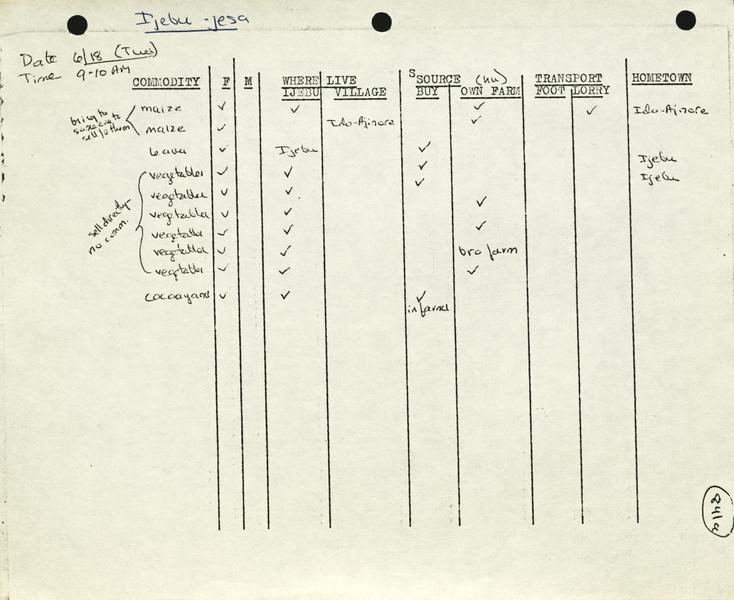 Ijebu-jesa
Date 6/18 (Tues)
Time 9-10 AM
COMMODITY F M WHERE LIVE SOURCE (hu) TRANSPORT HOMETOWN
IJEBU VILLAGE BUY OWN FARM FOOT LORRY
bring to
sell/o them
maize ✓ ✓ ✓ ✓ Ido-Ajinore
maize ✓ Ido-Ajinore ✓
✓ Ijebu ✓ Ijebu
vegetables ✓ ✓ ✓ Ijebu
vegetables ✓ ✓ ✓
sell directly
no comm.
vegetables ✓ ✓ ✓
vegetables ✓ ✓ ✓
vegetables ✓ ✓ bro farm
vegetables ✓ ✓ ✓
cocoayams ✓ ✓ ✓
in farms